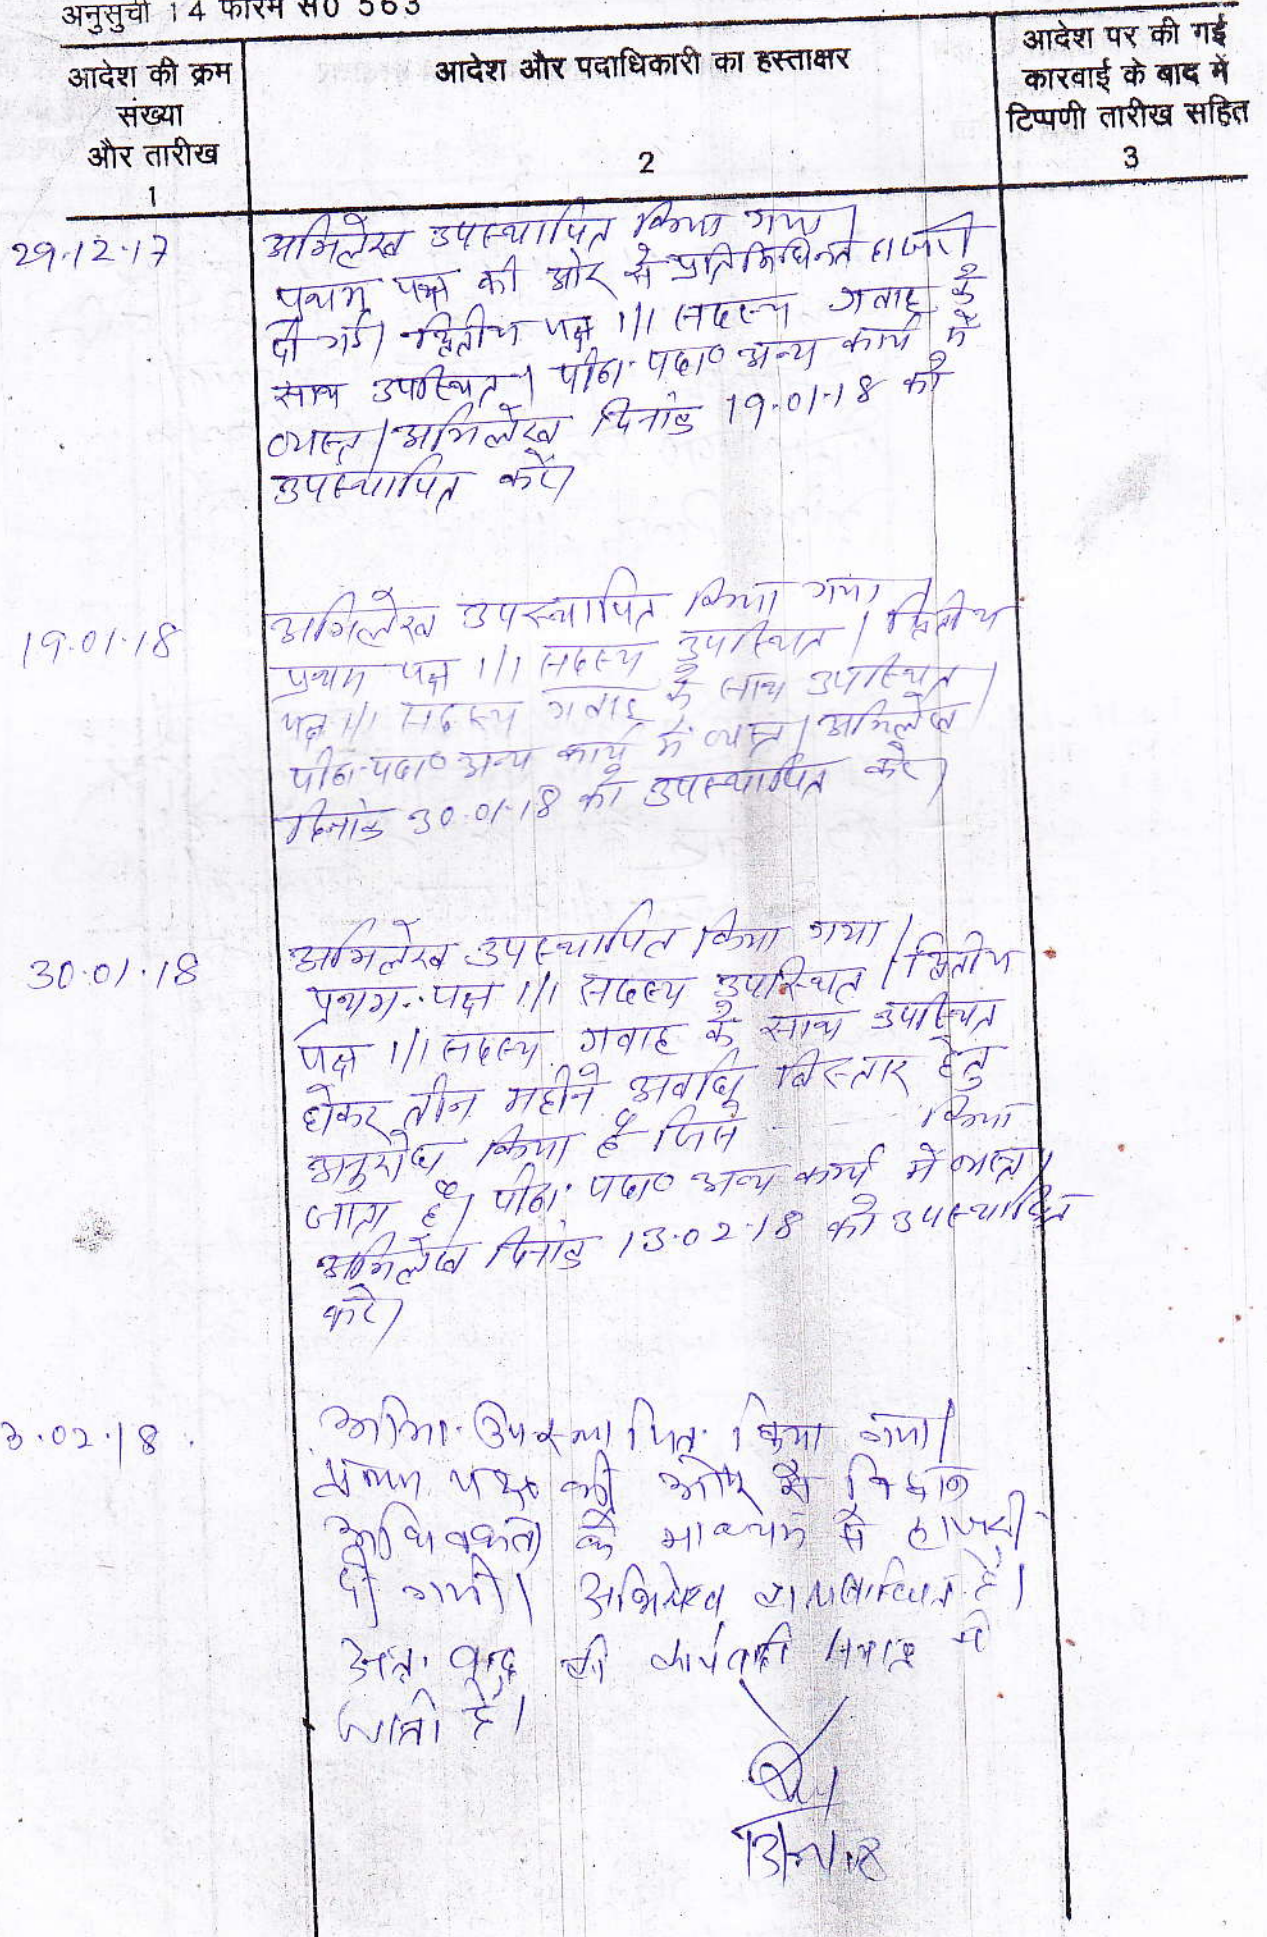 अनुसुची 14 फारम सं0 563
आदेश की क्रम
संख्या
और तारीख
1
आदेश और पदाधिकारी का हस्ताक्षर
2
आदेश पर की गई
कारवाई के बाद में
टिप्पणी तारीख सहित
3
29.12.17
अभिलेख उपस्थापित किया गया।
प्रथम पक्ष की ओर से प्रतिनिधित्व हाजरी
दी गई। द्वितीय पक्ष 1/1 सदस्य गवाह के
साथ उपस्थित। पीठा. पदा० अन्य कार्य में
व्यस्त। अभिलेख दिनांक 19.01.18 को
उपस्थापित करें।
19.01.18
अभिलेख उपस्थापित किया गया।
प्रथम पक्ष 1/1 सदस्य उपस्थित। द्वितीय
पक्ष 1/1 सदस्य गवाह के साथ उपस्थित।
पीठा. पदा० अन्य कार्य में व्यस्त। अभिलेख
दिनांक 30.01.18 को उपस्थापित करें।
30.01.18
अभिलेख उपस्थापित किया गया।
प्रथम पक्ष 1/1 सदस्य उपस्थित। द्वितीय
पक्ष 1/1 सदस्य गवाह के साथ उपस्थित
होकर तीन महीने अवधि विस्तार हेतु
अनुरोध किया है जिसे किया
जाता है। पीठा. पदा० अन्य कार्य में व्यस्त।
अभिलेख दिनांक 13.02.18 को उपस्थापित
करें।
3.02.18
उपस्थापित किया गया।
प्रथम पक्ष की ओर से विद्वान
अधिवक्ता के माध्यम से हाजरी
दी गयी। अभिलेख है।
अतः वाद की कार्यवाही समाप्त की
जाती है।